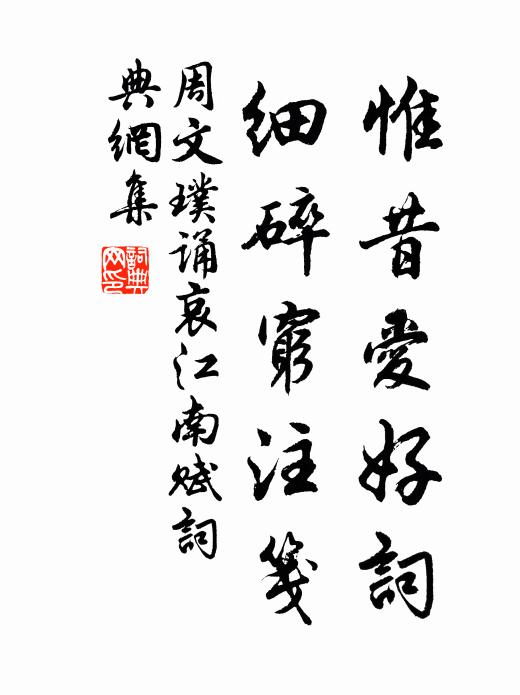 惟昔愛好詞
細碎窮注箋
周文璞誦哀江南賦詞
典網集
詞典网印